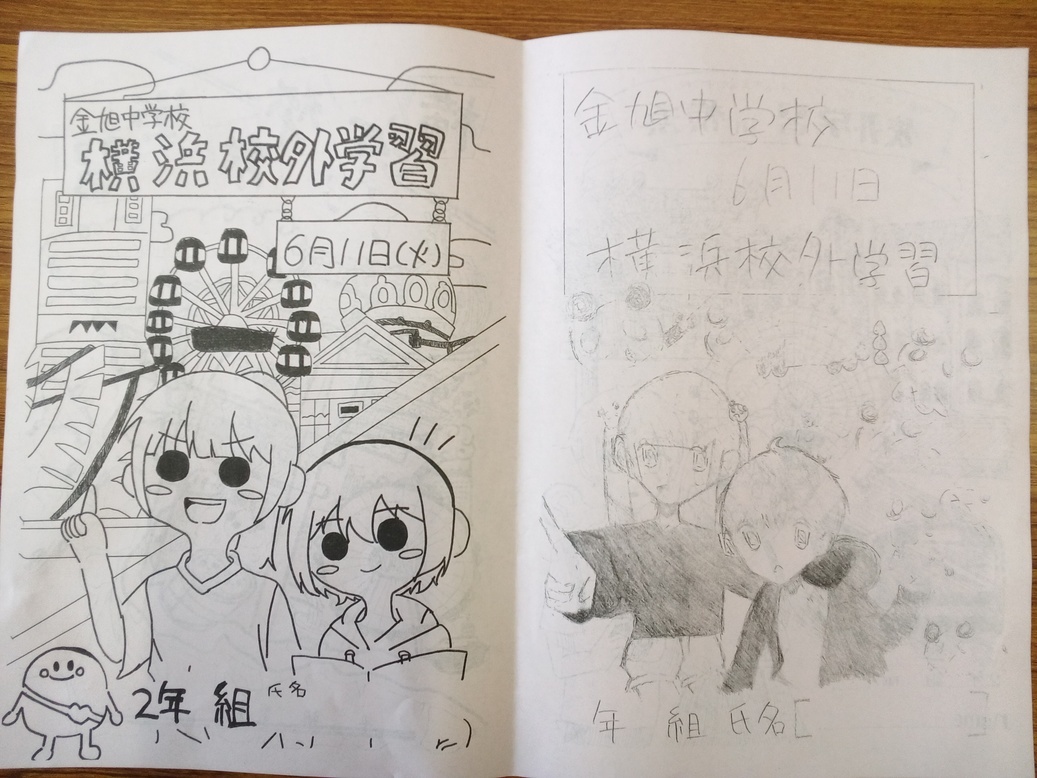 金旭中学校
横浜校外学習
6月11日(火)
2年 組 氏名
金旭中学校
6月11日
横浜校外学習
年 組 氏名[